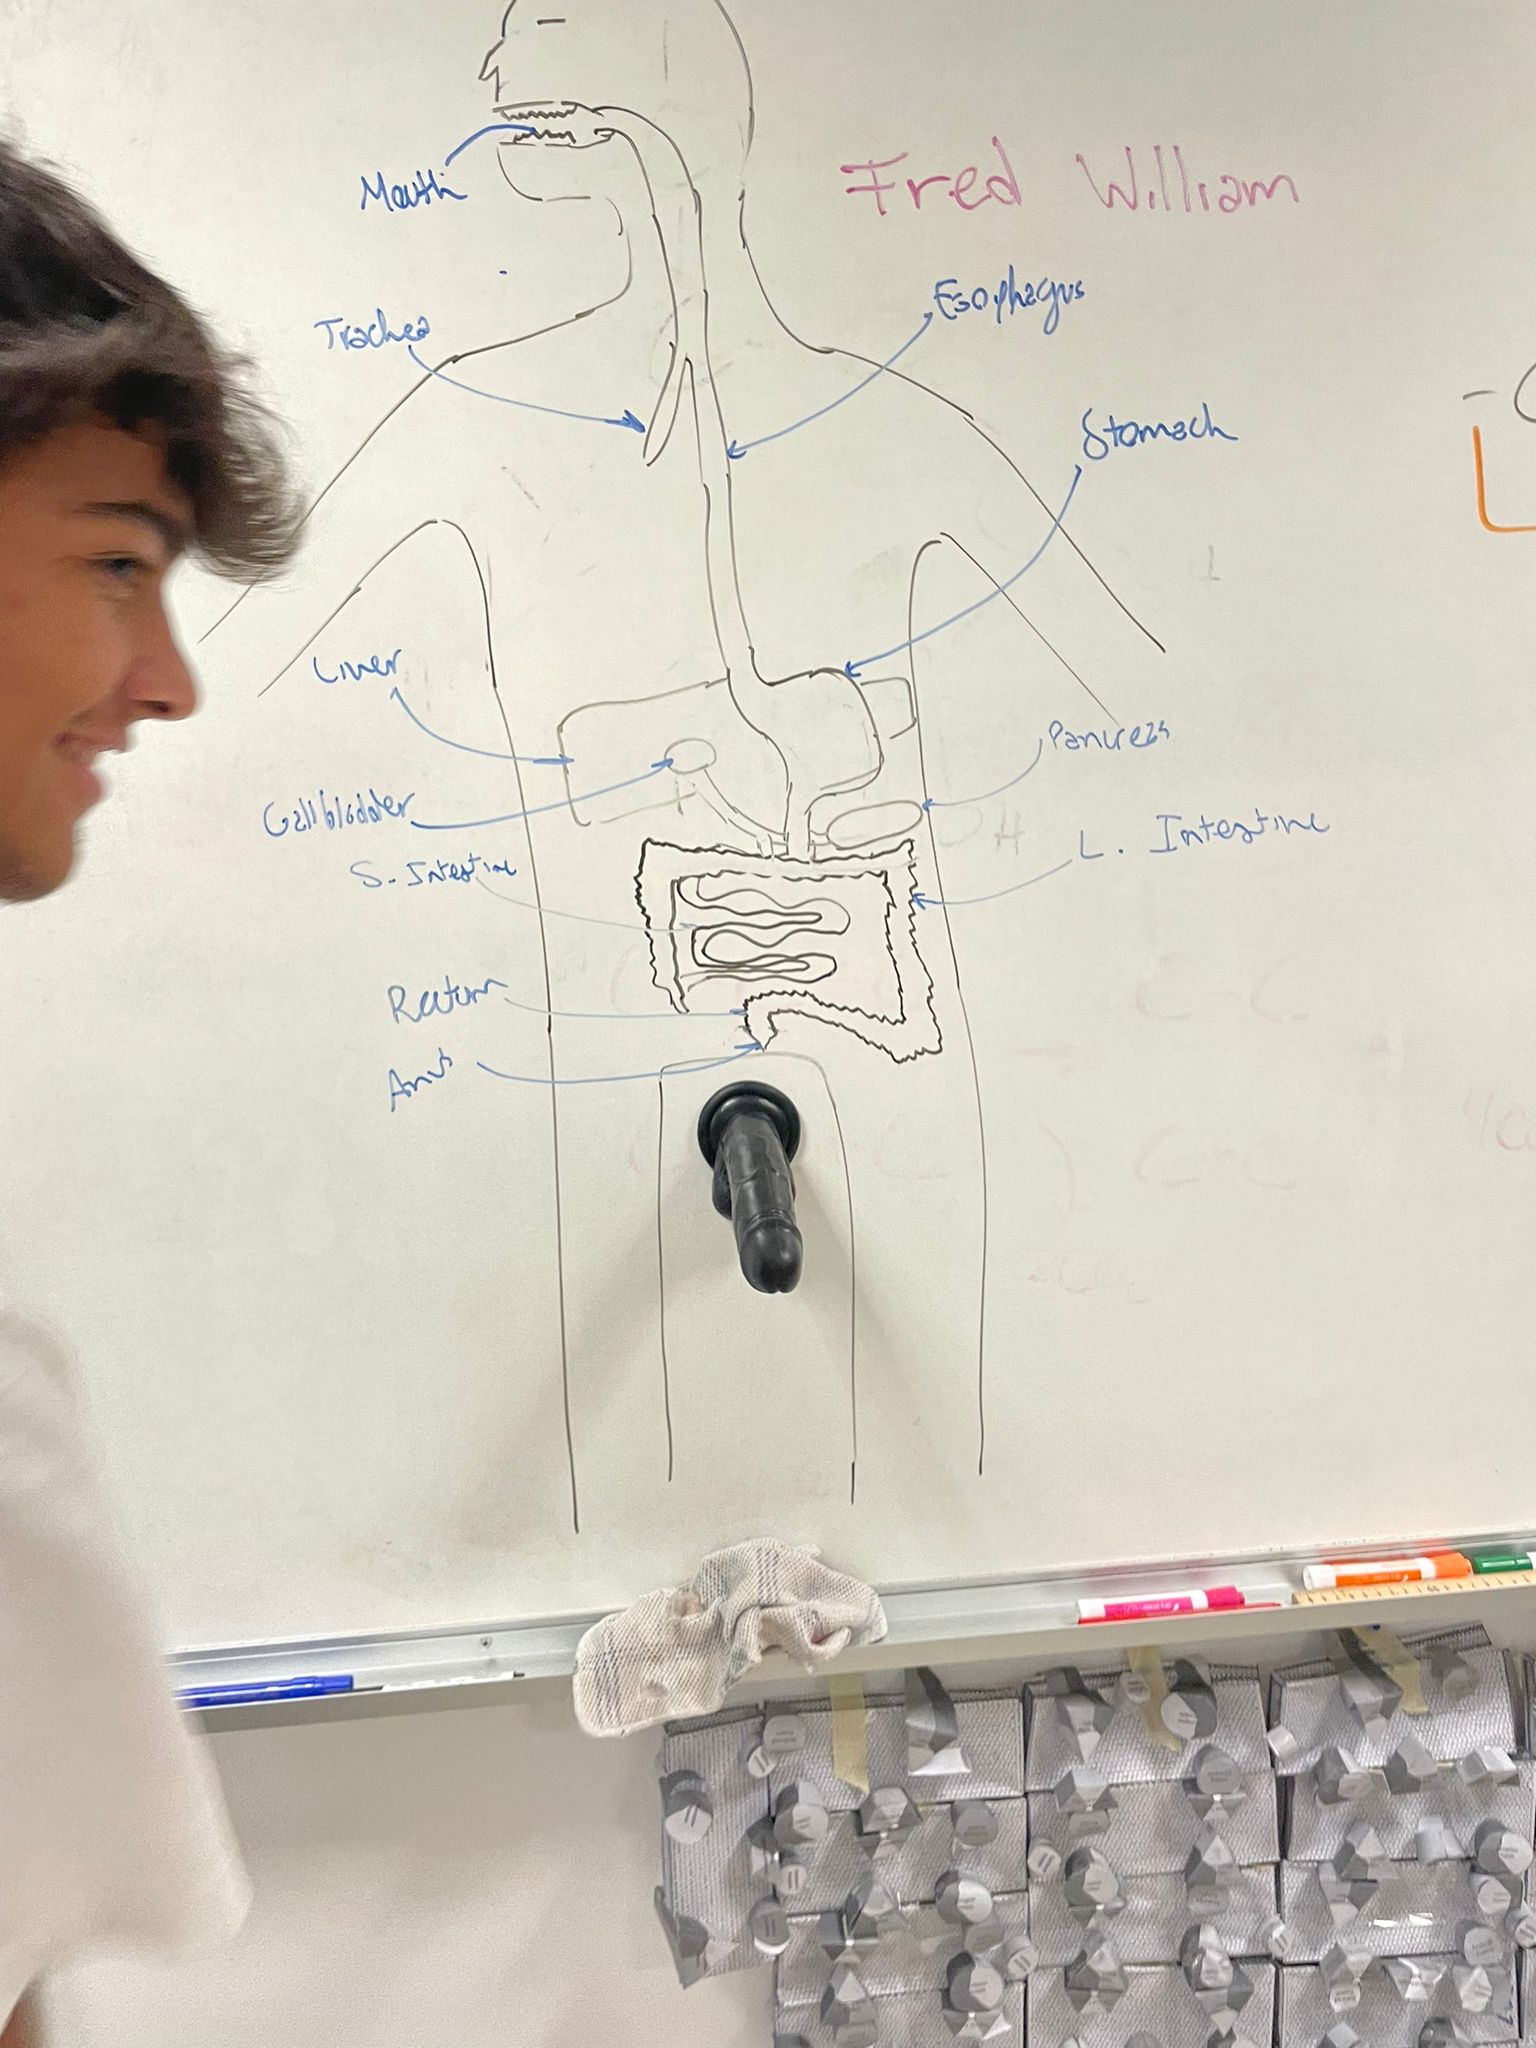 Mouth
Fred William
Trachea
Esophagus
Stomach
Liver
Pancreas
Gallbladder
L. Intestine
S. Intestine
Rectum
Anus